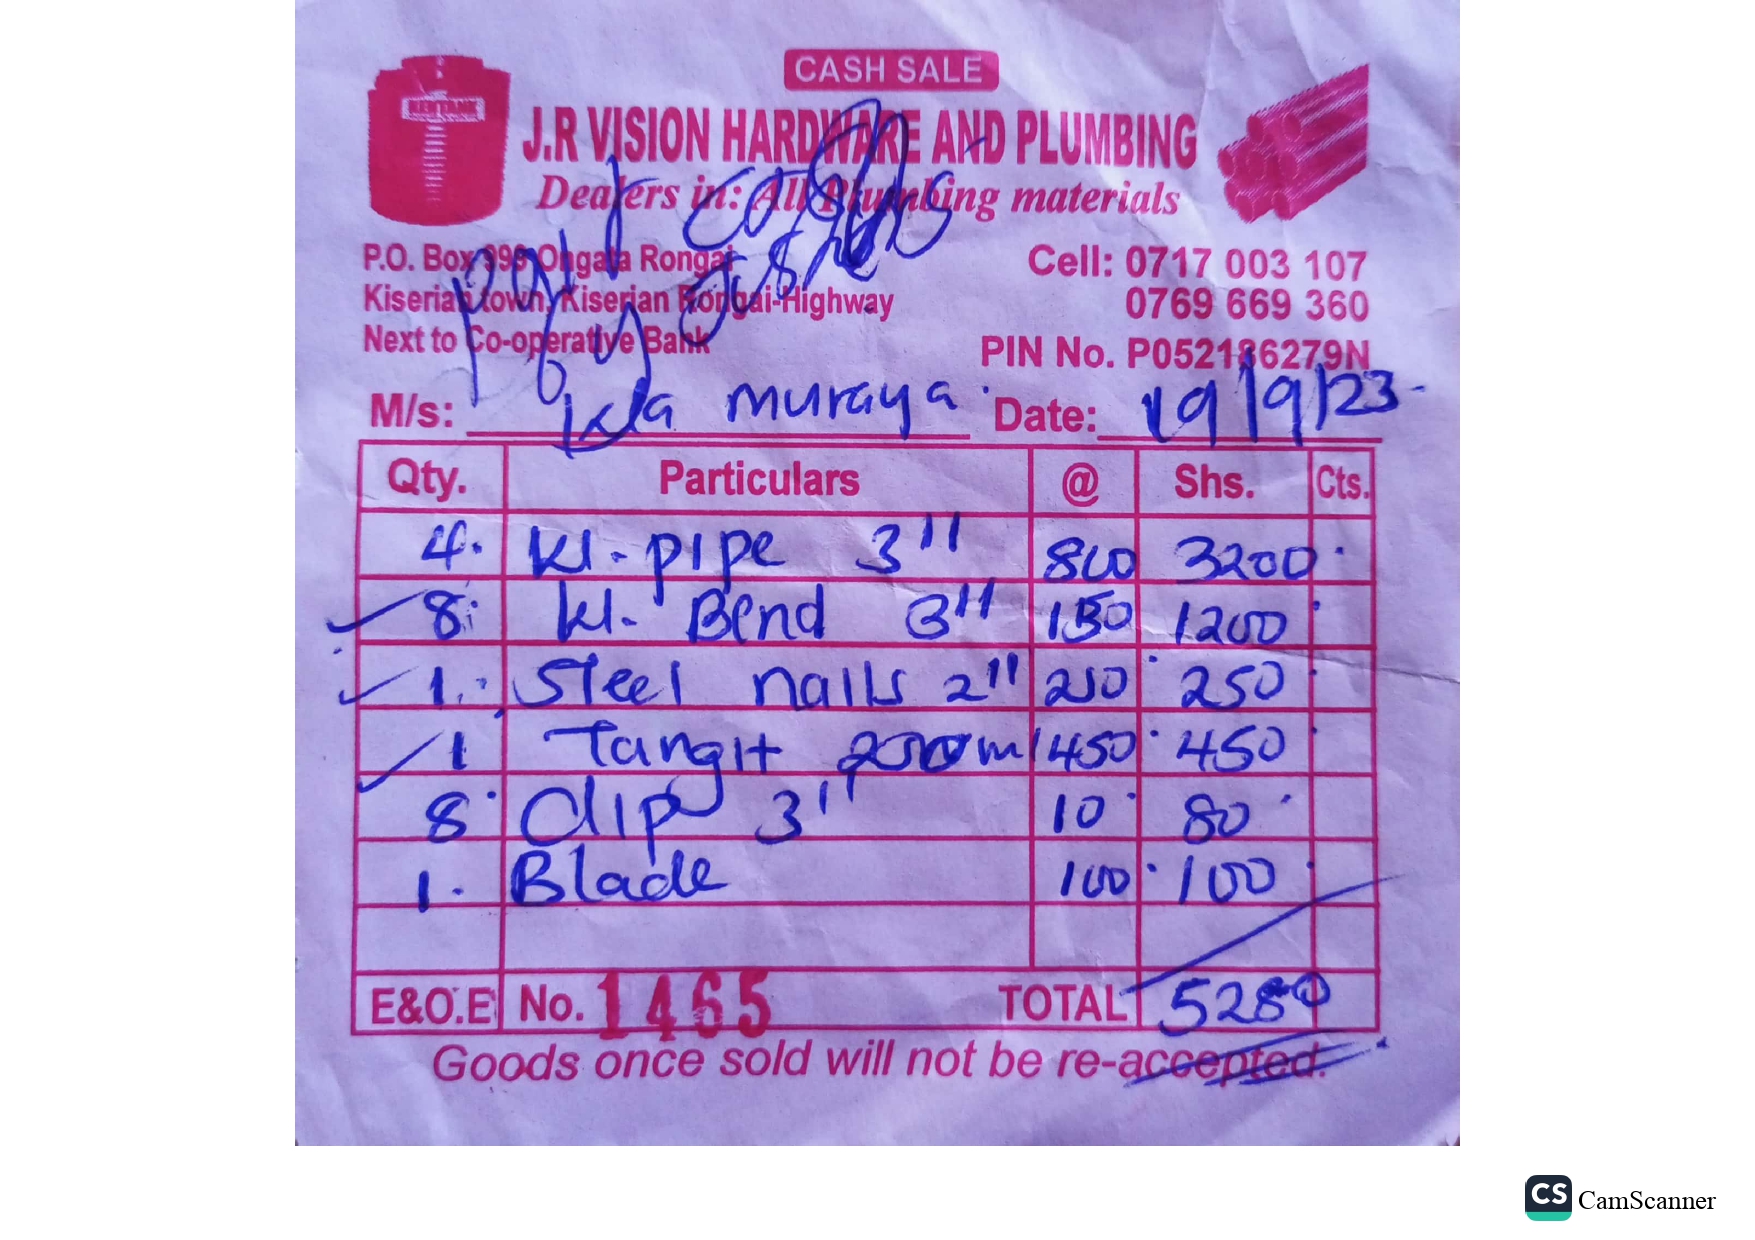 CASH SALE
KENTANK
J.R VISION HARDWARE AND PLUMBING
Dealers in: All Plumbing materials
P.O. Box 399 Ongata Rongai
Kiserian town, Kiserian Rongai-Highway
Next to Co-operative Bank
Cell: 0717 003 107
0769 669 360
PIN No. P052186279N
M/s: muraya Date: 19/9/23
Qty. Particulars @ Shs. Cts.
4. kl-pipe 3" 800 3200
8 kl. Bend 3" 150 1200
1. Steel nails 2" 250 250
1 Tangit 450 450
8 Clip 3" 10 80
1. Blade 100 100
E&O.E No. 1465 TOTAL 5280
Goods once sold will not be re-accepted.
CS CamScanner